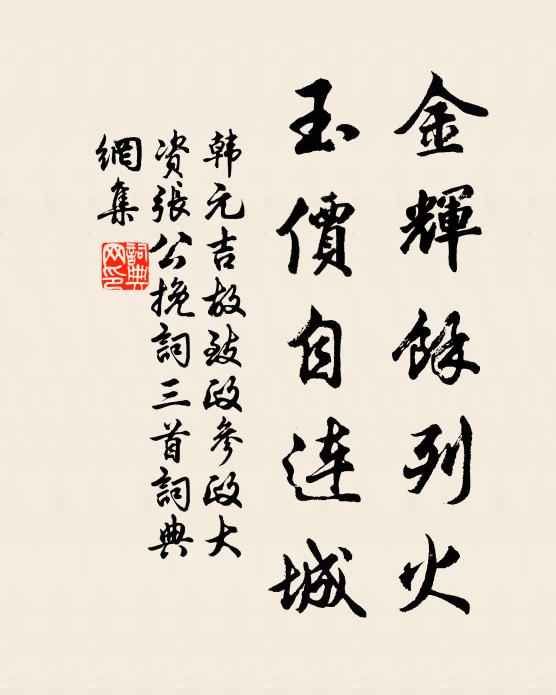 金輝餘列火
玉價自连城
韩元吉故致政參政大
资張公挽詞三首詞典
網集
詞典
网印